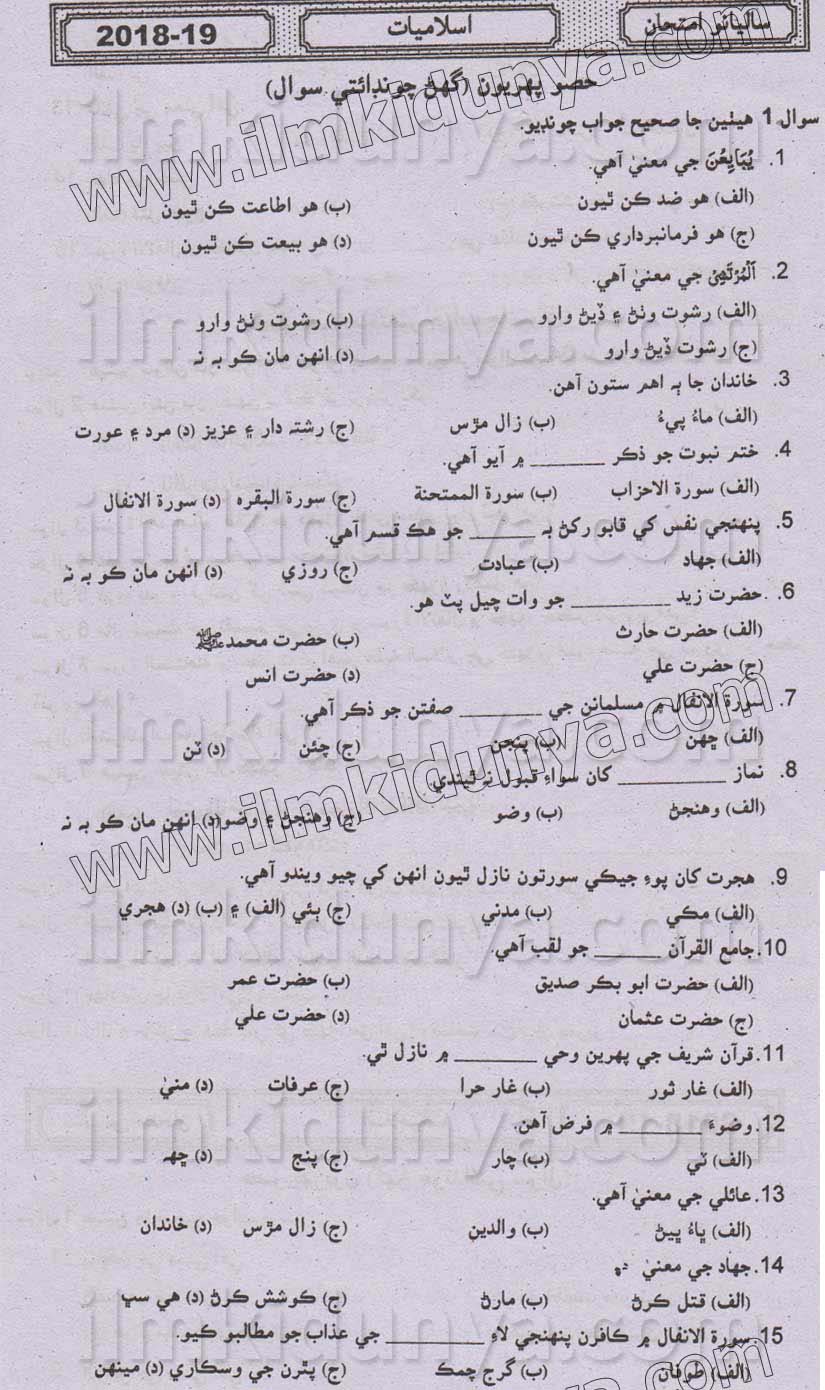 سالياڻو امتحان
اسلاميات
2018-19
حصو پهريون (گهڻ چونڊائتي سوال)
سوال 1 هيٺين جا صحيح جواب چونڊيو.
1. يُبَايِعْنَ جي معنيٰ آهي.
(الف) هو ضد ڪن ٿيون (ب) هو اطاعت ڪن ٿيون
(ج) هو فرمانبرداري ڪن ٿيون (د) هو بيعت ڪن ٿيون
2. اَلْمُرْتَشِيْ جي معنيٰ آهي.
(الف) رشوت وٺڻ ۽ ڏيڻ وارو (ب) رشوت وٺڻ وارو
(ج) رشوت ڏيڻ وارو (د) انهن مان ڪو بہ نہ
3. خاندان جا ٻہ اهم ستون آهن.
(الف) ماءُ پيءُ (ب) زال مڙس (ج) رشتہ دار ۽ عزيز (د) مرد ۽ عورت
4. ختم نبوت جو ذڪر ________ ۾ آيو آهي.
(الف) سورة الاحزاب (ب) سورة الممتحنة (ج) سورة البقره (د) سورة الانفال
5. پنهنجي نفس کي قابو رکڻ بہ ________ جو هڪ قسم آهي.
(الف) جهاد (ب) عبادت (ج) روزي (د) انهن مان ڪو بہ نہ
6. حضرت زيد ________ جو وات چيل پٽ هو.
(الف) حضرت حارث (ب) حضرت محمدﷺ
(ج) حضرت علي (د) حضرت انس
7. سورة الانفال ۾ مسلمانن جي ________ صفتن جو ذڪر آهي.
(الف) ڇهن (ب) پنجن (ج) چئن (د) ٽن
8. نماز ________ کان سواءِ قبول نہ ٿيندي
(الف) وهنجڻ (ب) وضو (ج) وهنجڻ ۽ وضو (د) انهن مان ڪو بہ نہ
9. هجرت کان پوءِ جيڪي سورتون نازل ٿيون انهن کي چيو ويندو آهي.
(الف) مڪي (ب) مدني (ج) ٻئي (الف) ۽ (ب) (د) هجري
10. جامع القرآن ________ جو لقب آهي.
(الف) حضرت ابو بڪر صديق (ب) حضرت عمر
(ج) حضرت عثمان (د) حضرت علي
11. قرآن شريف جي پهرين وحي ________ ۾ نازل ٿي.
(الف) غار ثور (ب) غار حرا (ج) عرفات (د) منيٰ
12. وضوءَ ________ ۾ فرض آهن.
(الف) ٽي (ب) چار (ج) پنج (د) ڇهہ
13. عائلي جي معنيٰ آهي.
(الف) ڀاءُ ڀيڻ (ب) والدين (ج) زال مڙس (د) خاندان
14. جهاد جي معنيٰ
(الف) قتل ڪرڻ (ب) مارڻ (ج) ڪوشش ڪرڻ (د) هي سڀ
15. سورة الانفال ۾ ڪافرن پنهنجي لاءِ ________ جي عذاب جو مطالبو ڪيو.
(الف) طوفان (ب) گرج چمڪ (ج) پٿرن جي وسڪاري (د) مينهن
www.ilmkidunya.com
www.ilmkidunya.com
ilmkidunya.com